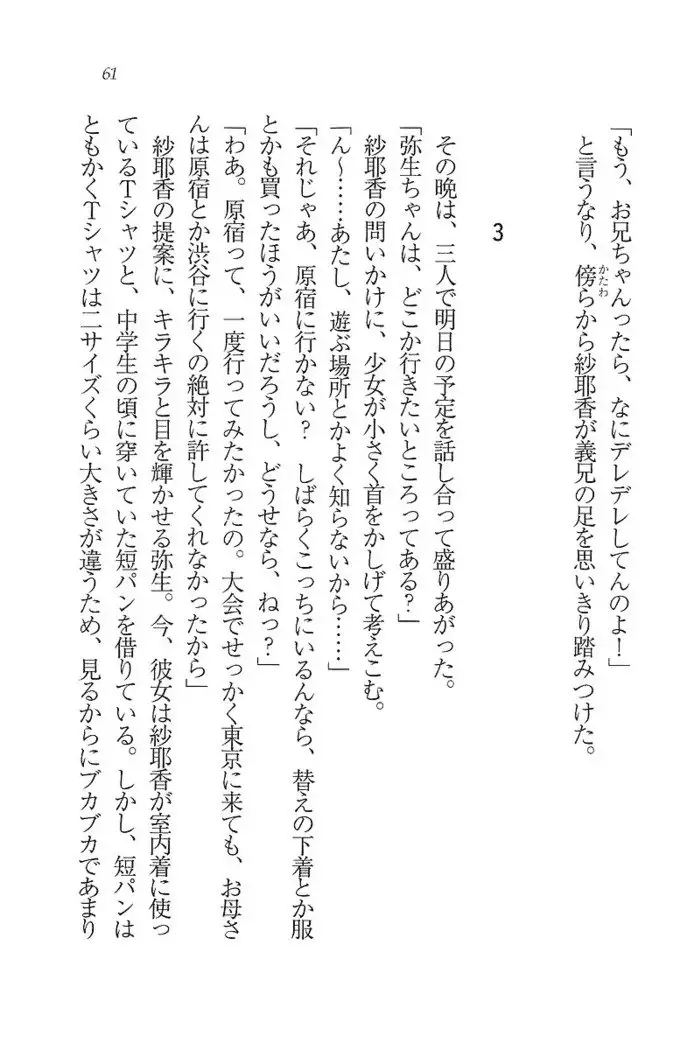 61
「もう、お兄ちゃんったら、なにデレデレしてんのよ！」
と言うなり、傍らから紗耶香が義兄の足を思いきり踏みつけた。
かたわ
3
その晩は、三人で明日の予定を話し合って盛りあがった。
「弥生ちゃんは、どこか行きたいところってある？」
紗耶香の問いかけに、少女が小さく首をかしげて考えこむ。
「ん～……あたし、遊ぶ場所とかよく知らないから……」
「それじゃあ、原宿に行かない？　しばらくこっちにいるんなら、替えの下着とか服
とかも買ったほうがいいだろうし、どうせなら、ねっ？」
「わあ。原宿って、一度行ってみたかったの。大会でせっかく東京に来ても、お母さ
んは原宿とか渋谷に行くの絶対に許してくれなかったから」
紗耶香の提案に、キラキラと目を輝かせる弥生。今、彼女は紗耶香が室内着に使っ
ているTシャツと、中学生の頃に穿いていた短パンを借りている。しかし、短パンは
ともかくTシャツは二サイズくらい大きさが違うため、見るからにブカブカであまり